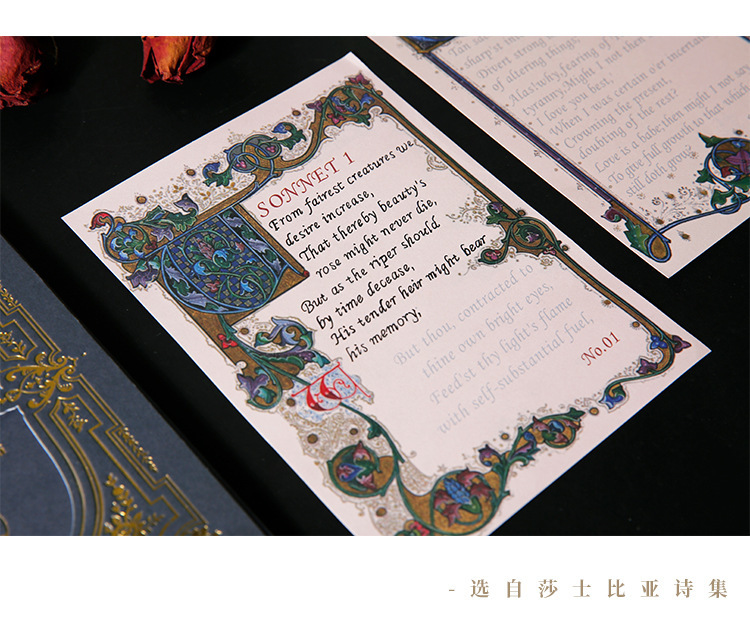 SONNET 1
From fairest creatures we
desire increase,
That thereby beauty's
rose might never die,
But as the riper should
by time decease,
His tender heir might bear
his memory,
But thou, contracted to
thine own bright eyes,
Feed'st thy light's flame
with self-substantial fuel,
No.01
sharp'st
Divert strong
of altering things;
tyranny,Might I not then
I love you best;
When I was certain o'er
Crowning the present,
doubting of the rest?
Love is a babe;then might I not
To give full growth to that which
still doth grow
-选自莎士比亚诗集